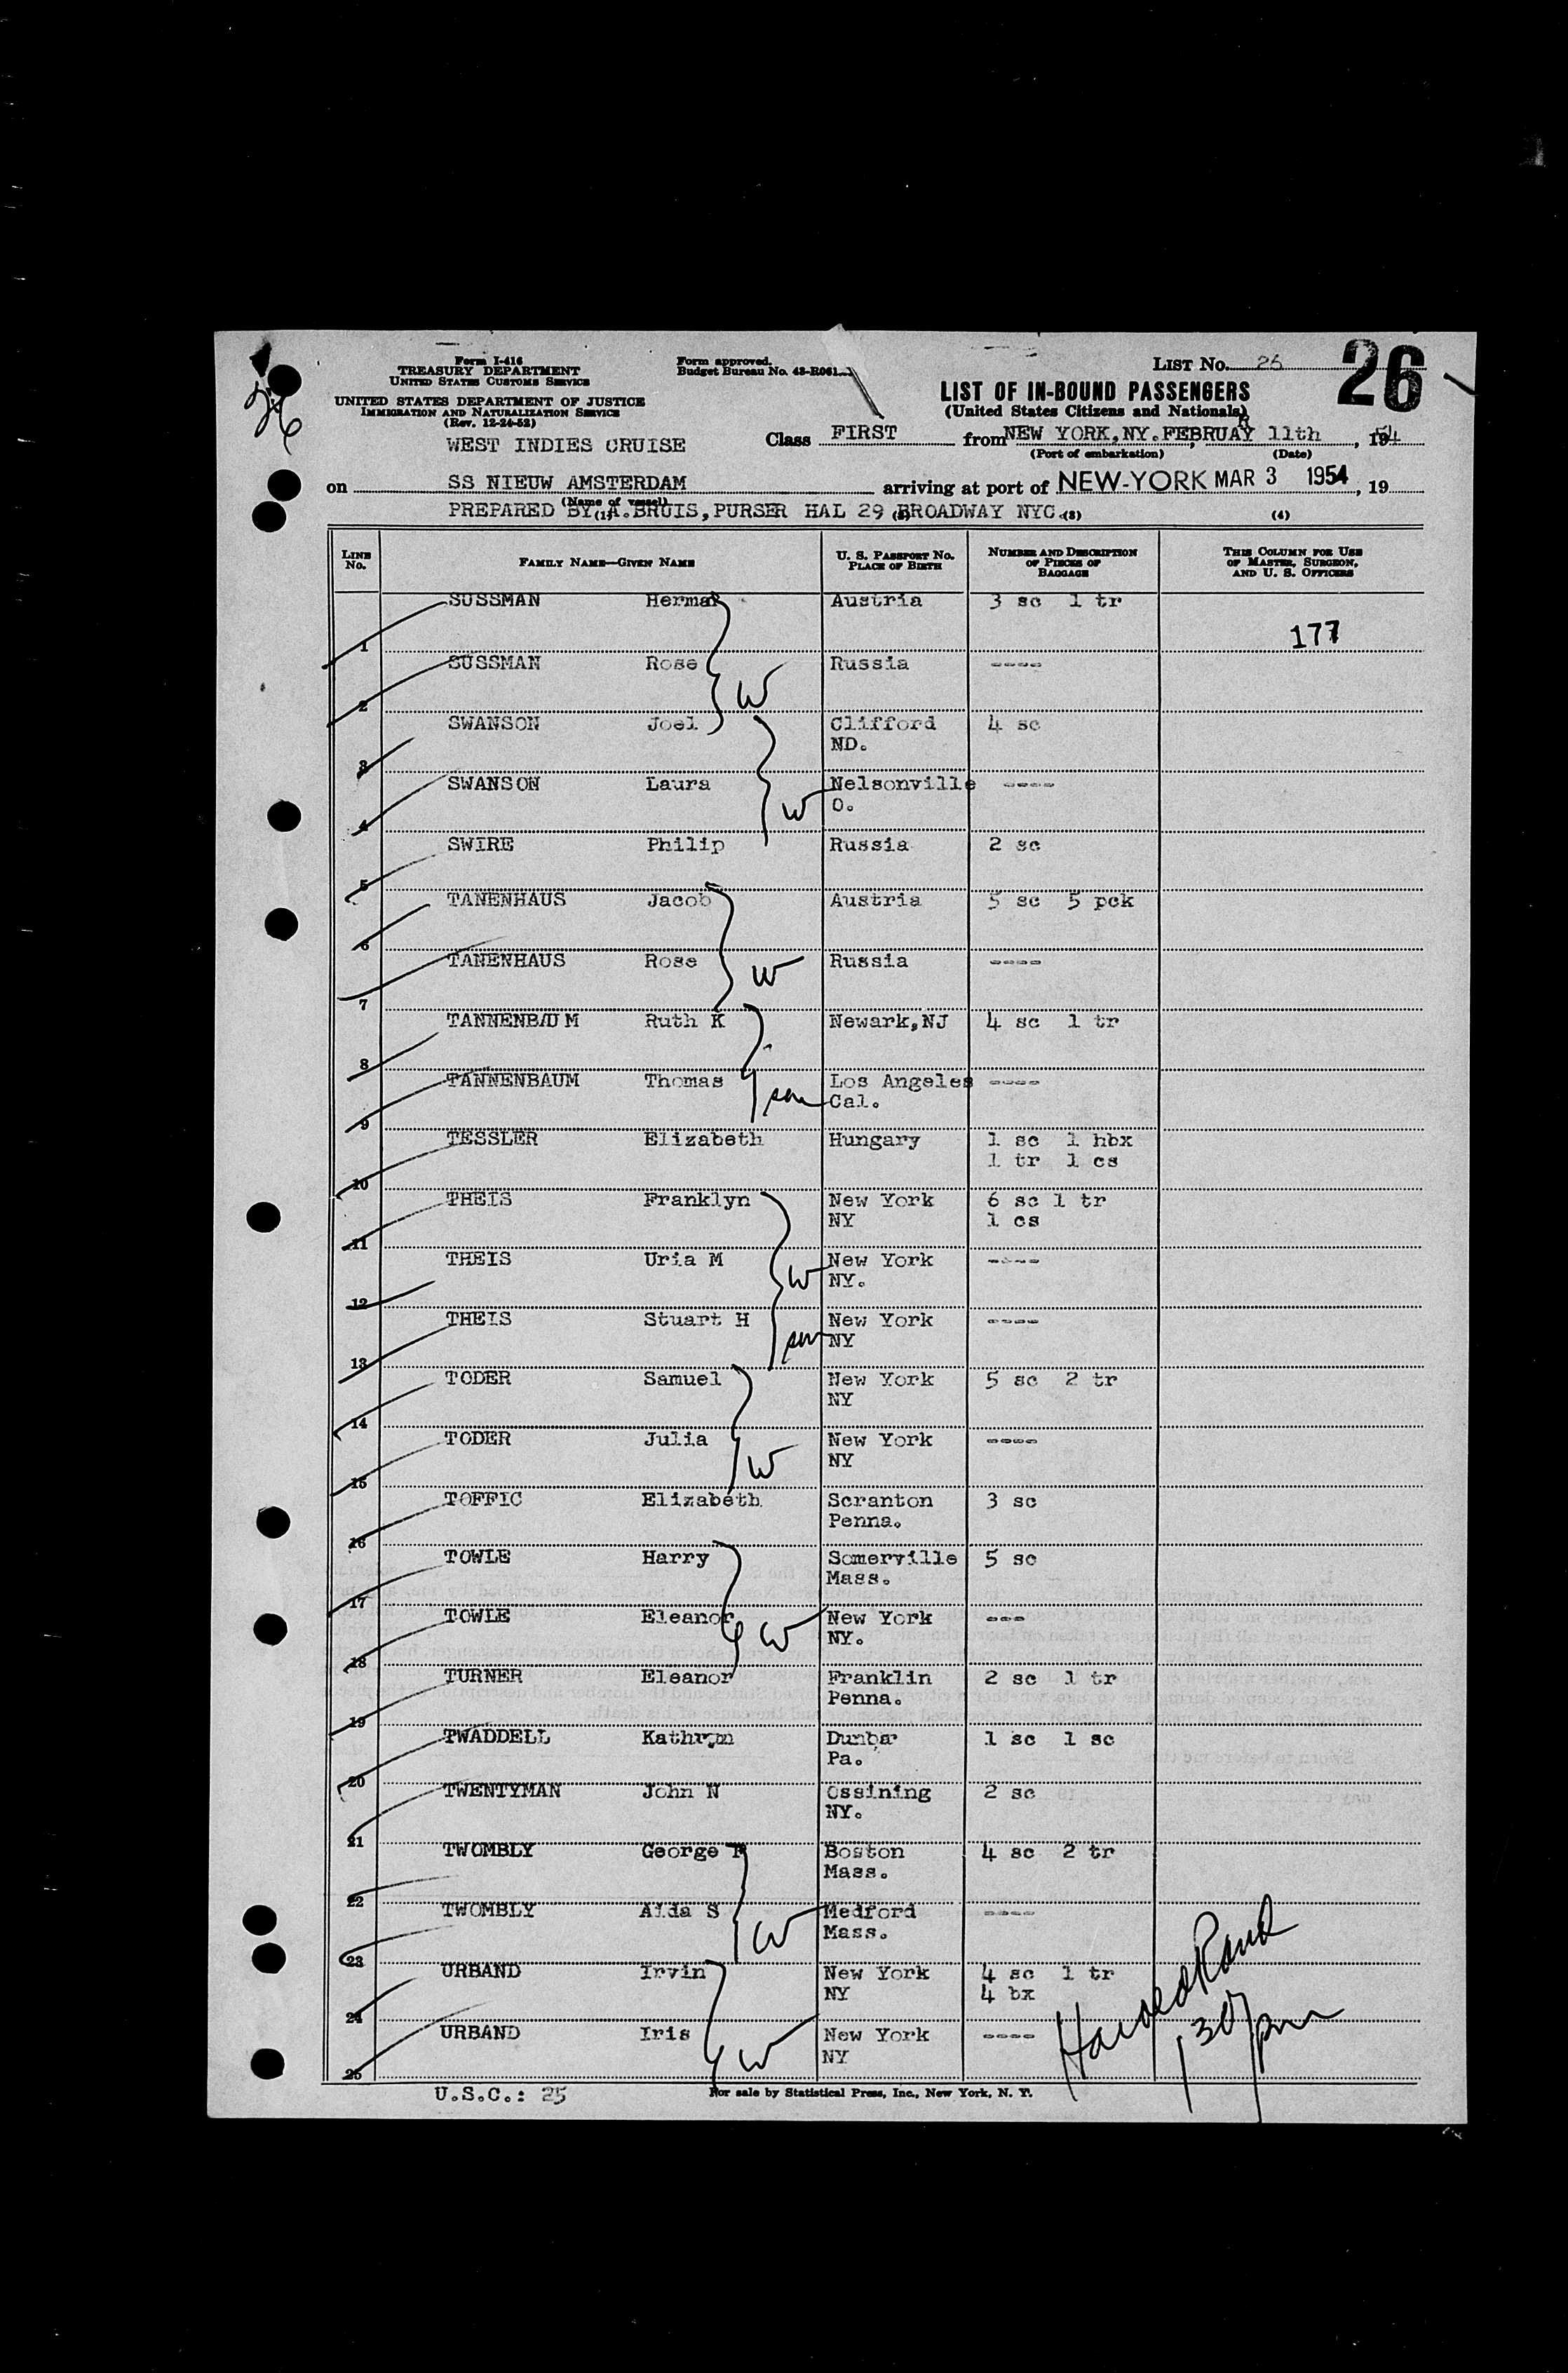 26
Form I-416
TREASURY DEPARTMENT
UNITED STATES CUSTOMS SERVICE
UNITED STATES DEPARTMENT OF JUSTICE
IMMIGRATION AND NATURALIZATION SERVICE
(Rev. 12-24-52)
Form approved.
Budget Bureau No. 43-R061
LIST No. 26
26
LIST OF IN-BOUND PASSENGERS
(United States Citizens and Nationals)
WEST INDIES CRUISE
Class FIRST from NEW YORK, NY. FEBRUARY 11th, 1954
(Port of embarkation) (Date)
on SS NIEUW AMSTERDAM arriving at port of NEW-YORK MAR 3 1954, 19
(Name of vessel)
PREPARED BY A.BRUIS, PURSER HAL 29 BROADWAY NYC.
(1) (2) (3) (4)
LINE No. FAMILY NAME—GIVEN NAME U. S. PASSPORT No. PLACE OF BIRTH NUMBER AND DESCRIPTION OF PIECES OF BAGGAGE THIS COLUMN FOR USE OF MASTER, SURGEON, AND U. S. OFFICERS
1 SUSSMAN Herman Austria 3 sc 1 tr 177
2 SUSSMAN Rose W Russia ----
3 SWANSON Joel Clifford ND. 4 sc
4 SWANSON Laura W Nelsonville O. ----
5 SWIRE Philip Russia 2 sc
6 TANENHAUS Jacob Austria 5 sc 5 pck
7 TANENHAUS Rose W Russia ----
8 TANNENBAUM Ruth K Newark,NJ 4 sc 1 tr
9 TANNENBAUM Thomas son Los Angeles Cal. ----
10 TESSLER Elizabeth Hungary 1 sc 1 hbx 1 tr 1 cs
11 THEIS Franklyn New York NY 6 sc 1 tr 1 cs
12 THEIS Uria M W New York NY. ----
13 THEIS Stuart H son New York NY ----
14 TODER Samuel New York NY 5 sc 2 tr
15 TODER Julia W New York NY ----
16 TOFFIC Elizabeth Scranton Penna. 3 sc
17 TOWLE Harry Somerville Mass. 5 sc
18 TOWLE Eleanor W New York NY. ---
19 TURNER Eleanor Franklin Penna. 2 sc 1 tr
20 TWADDELL Kathrym Dunbar Pa. 1 sc 1 sc
21 TWENTYMAN John N Ossining NY. 2 sc
22 TWOMBLY George Boston Mass. 4 sc 2 tr
23 TWOMBLY Alda S W Medford Mass. ----
24 URBAND Irvin New York NY 4 sc 1 tr 4 bx
25 URBAND Iris W New York NY ----
Harold Rand
130 pm
U.S.C.: 25
For sale by Statistical Press, Inc., New York, N. Y.